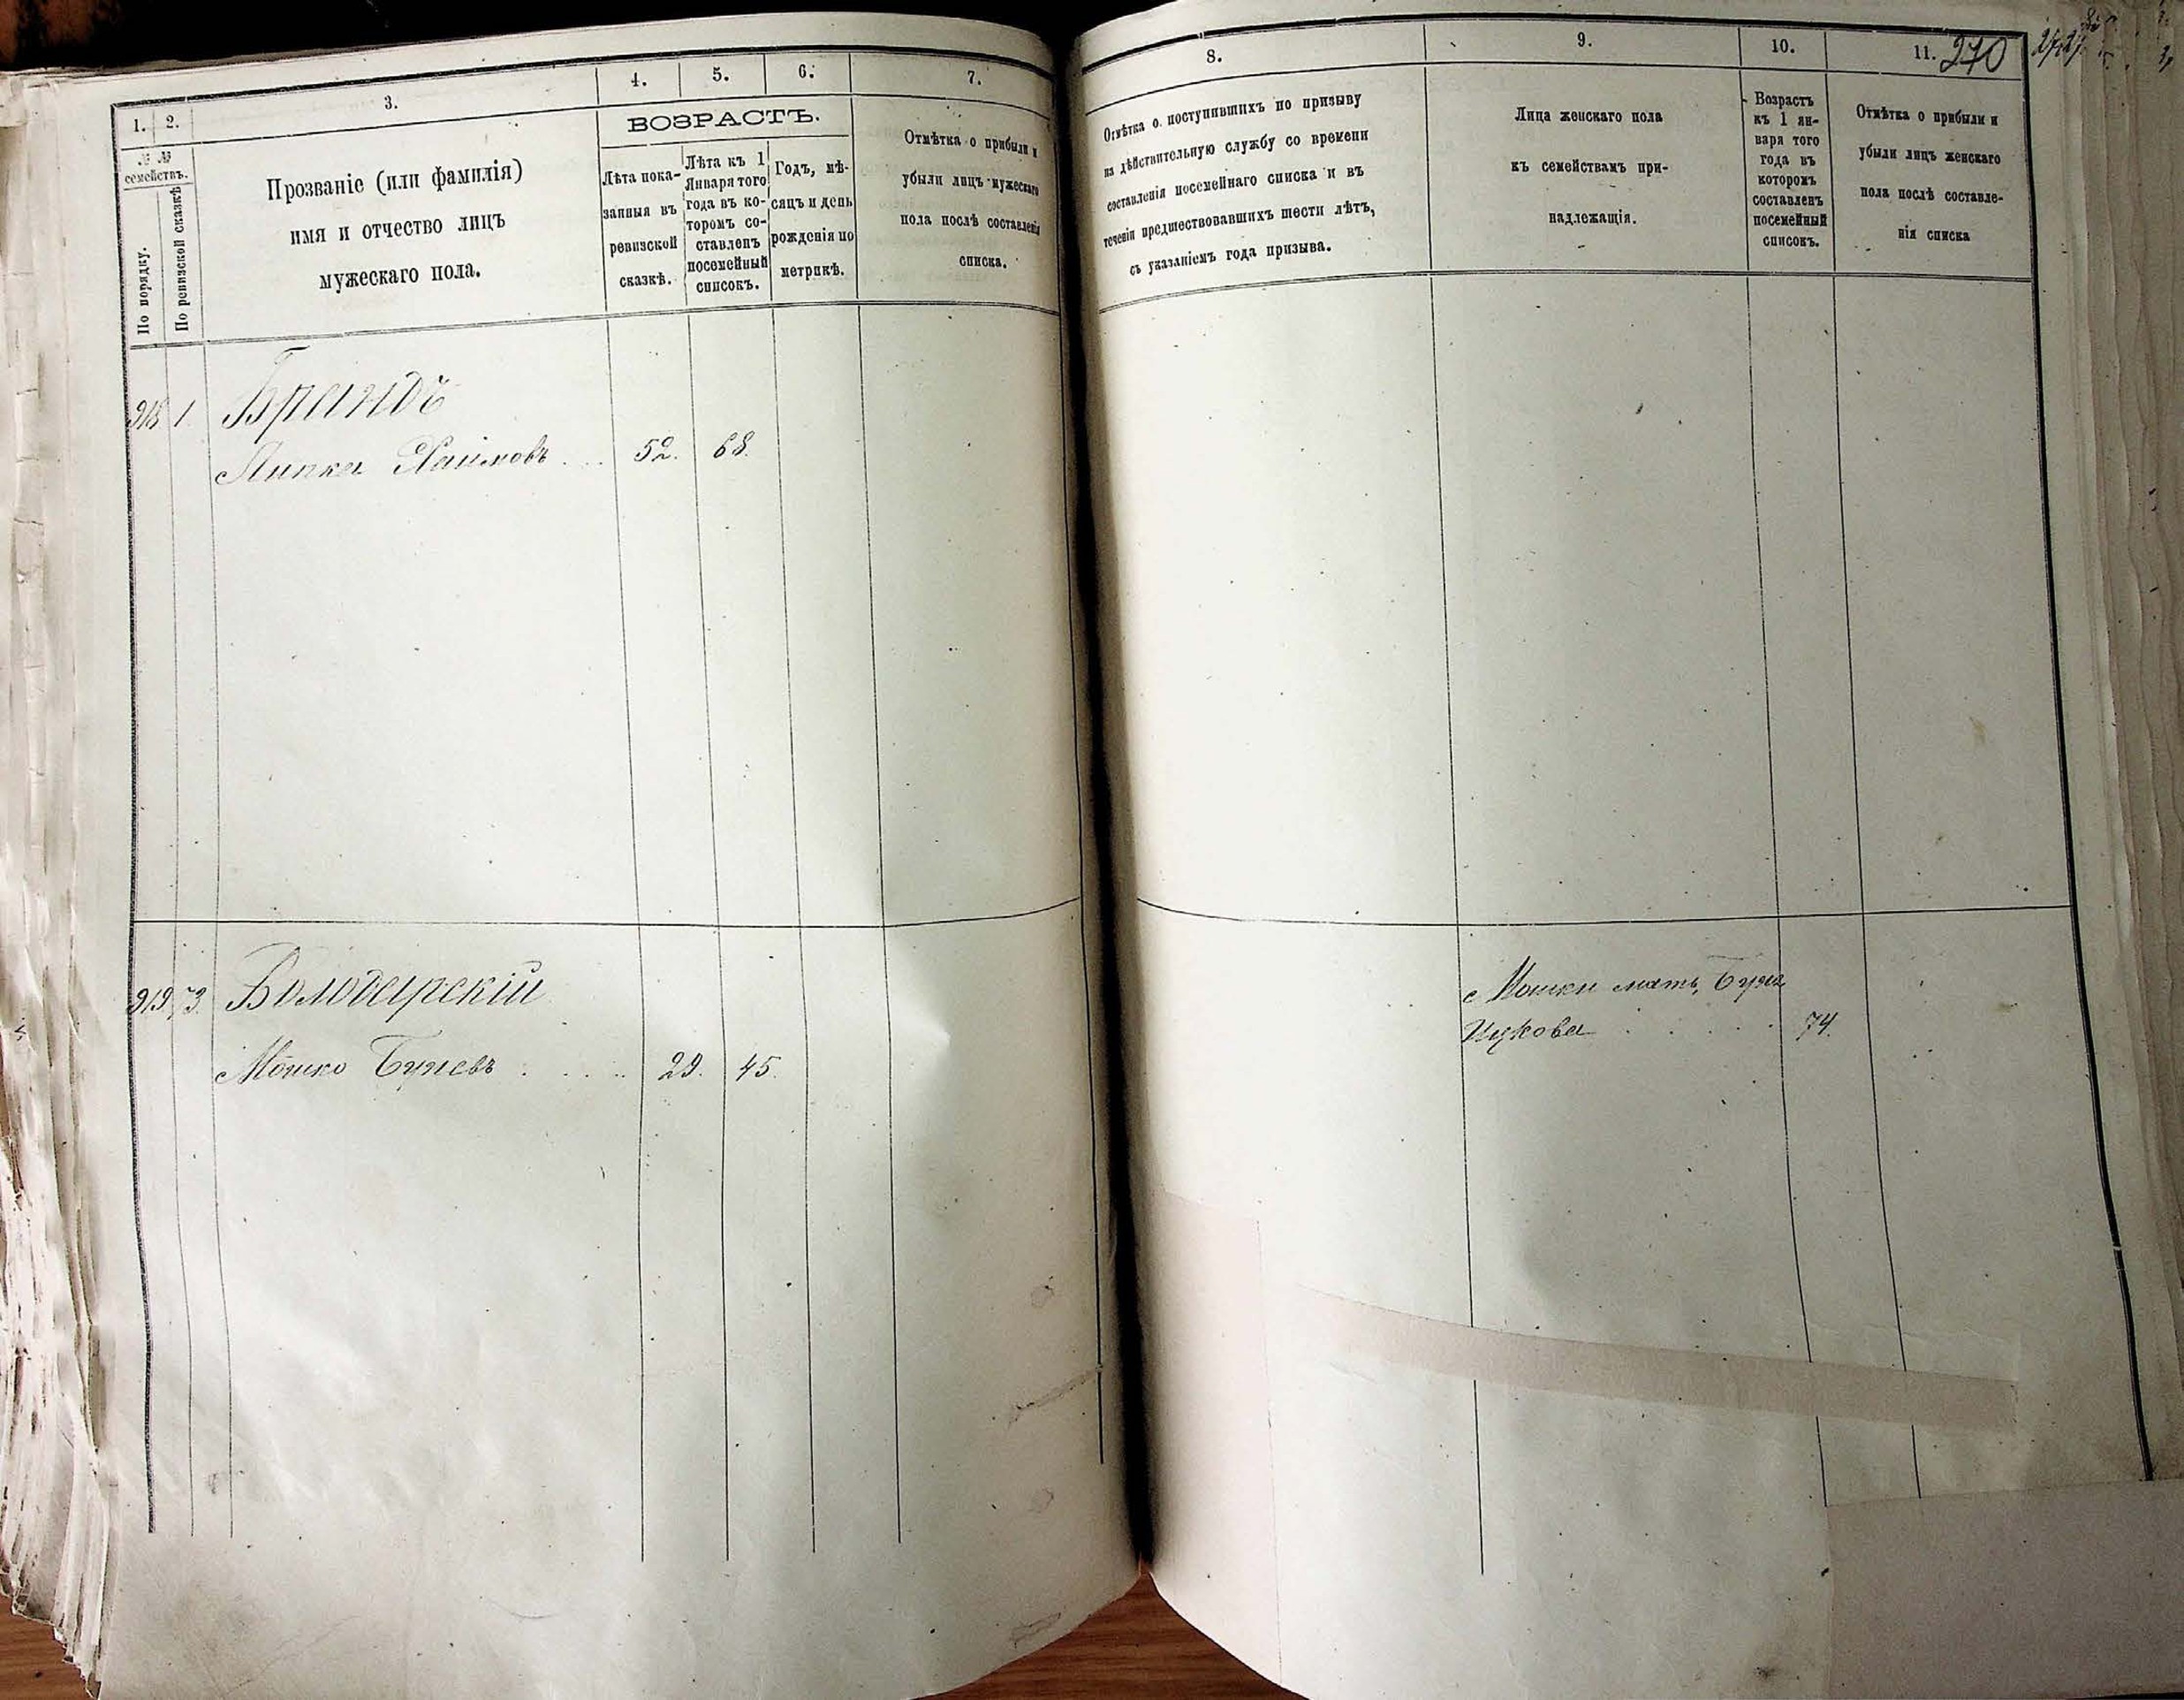 1.
2.
3.
4.
5.
6.
7.
№ №
семействъ.
По порядку.
По ревизской сказкѣ
Прозваніе (или фамилія)
имя и отчество лицъ
мужескаго пола.
ВОЗРАСТЪ.
Лѣта пока-
занныя въ
ревизской
сказкѣ.
Лѣта къ 1
Января того
года въ ко-
торомъ со-
ставленъ
посемейный
списокъ.
Годъ, мѣ-
сяцъ и день
рожденія по
метрикѣ.
Отмѣтка о прибыли и
убыли лицъ мужескаго
пола послѣ составленія
списка.
918 1 Брандъ
Хаимовъ 52. 68.
919 73. Володарскій
Мошко 29. 45.
8.
9.
10.
11. 270
Отмѣтка о поступившихъ по призыву
на дѣйствительную службу со времени
составленія посемейнаго списка и въ
теченіи предшествовавшихъ шести лѣтъ,
съ указаніемъ года призыва.
Лица женскаго пола
къ семействамъ при-
надлежащія.
Возрастъ
къ 1 ян-
варя того
года въ
которомъ
составленъ
посемейный
списокъ.
Отмѣтка о прибыли и
убыли лицъ женскаго
пола послѣ составле-
нія списка
Мошки мать,
Ицкова 74.